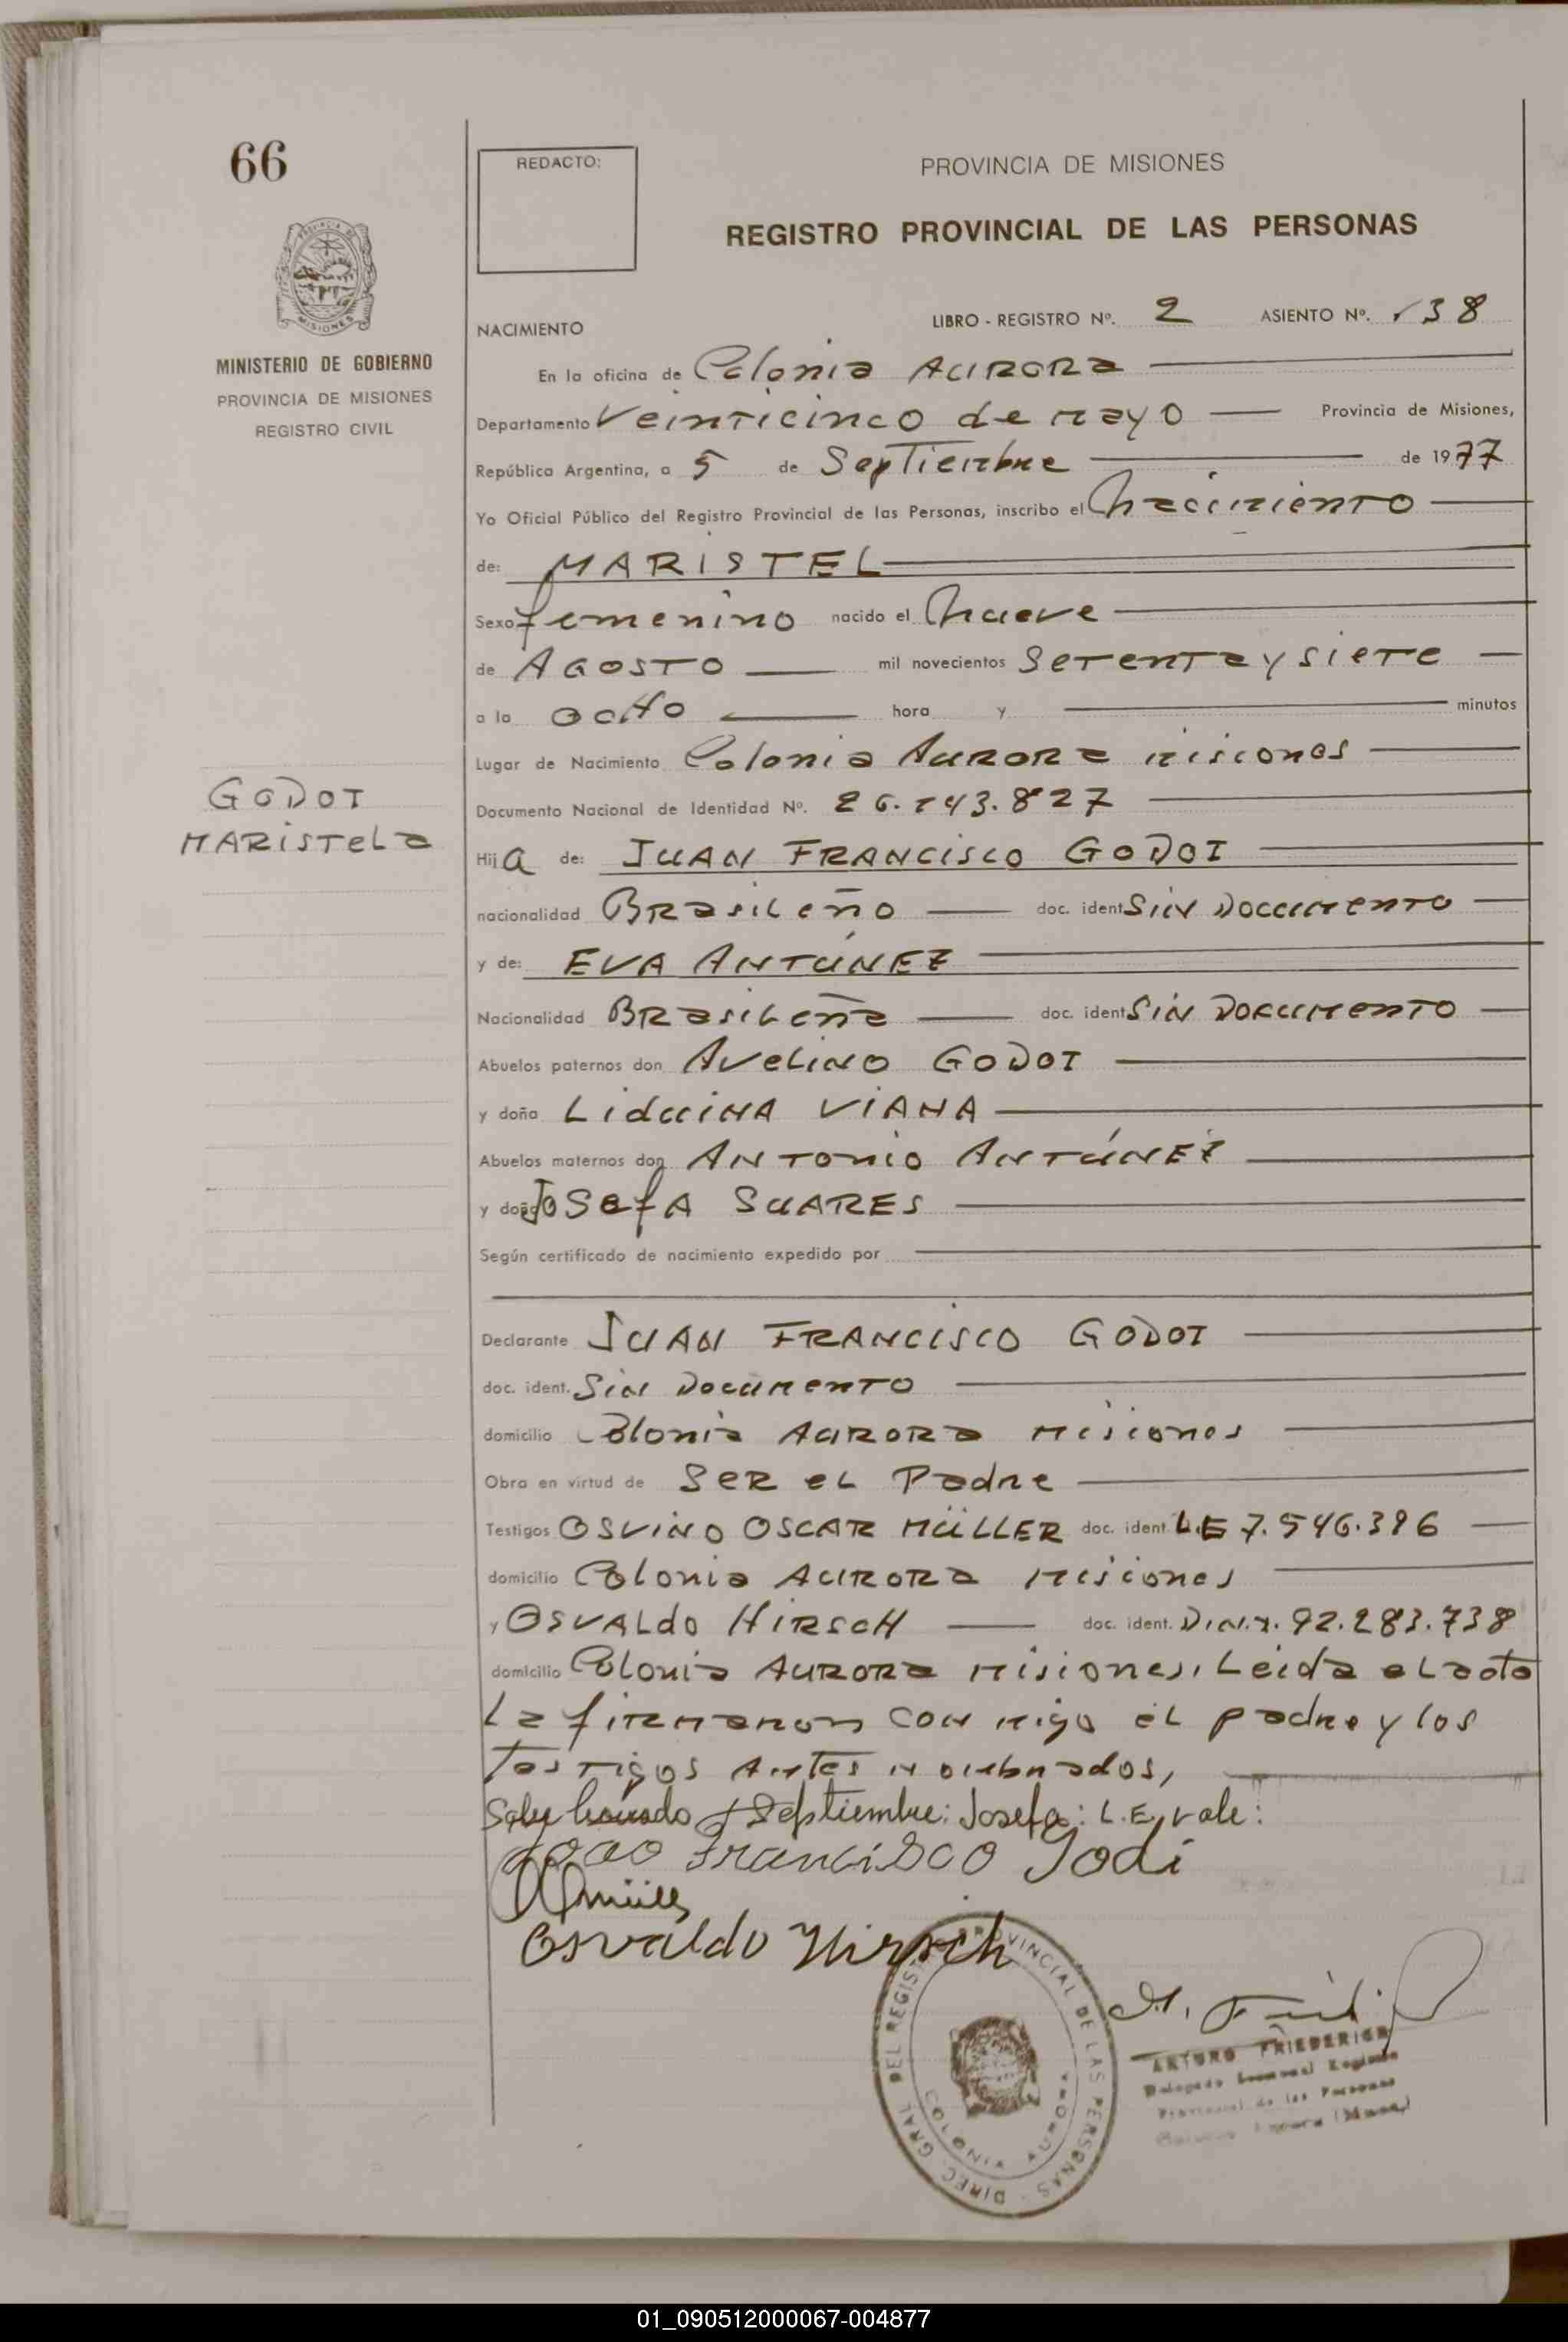 66
REDACTO:
PROVINCIA DE MISIONES
REGISTRO PROVINCIAL DE LAS PERSONAS
MISIONES
MINISTERIO DE GOBIERNO
PROVINCIA DE MISIONES
REGISTRO CIVIL
NACIMIENTO LIBRO - REGISTRO Nº. 2 ASIENTO Nº. 138
En la oficina de Colonia AURORA
Departamento Veinticinco de mayo Provincia de Misiones,
República Argentina, a 5 de Septiembre de 1977
Yo Oficial Público del Registro Provincial de las Personas, inscribo el Nacimiento
de: MARISTEL
Sexo femenino nacido el Nueve
de AGOSTO mil novecientos Setenta y siete
a la ocHo hora y minutos
Lugar de Nacimiento Colonia AURORA Misiones
GODOI
MARISTELa
Documento Nacional de Identidad Nº. 26.143.827
Hija de: JUAN FRANCISCO GODOI
nacionalidad BRasiLeño doc. ident SIN DOCUMENTO
y de: EVA ANTÚNEZ
Nacionalidad BRasiLeña doc. ident SIN DOCUMENTO
Abuelos paternos don AveLiNO GODOI
y doña LiduiNA VIANA
Abuelos maternos don ANTONIO ANTÚNEZ
y doña JOSefA SUARES
Según certificado de nacimiento expedido por
Declarante JUAN FRANCISCO GODOI
doc. ident. Sin DOCUMENTO
domicilio Colonia AURORA Misiones
Obra en virtud de SER eL Padre
Testigos OSVINO OSCAR MÜLLER doc. ident L.E 7.546.396
domicilio Colonia AURORA Misiones
y OSVALDO HIRSCH doc. ident. D.N.I. 92.283.738
domicilio Colonia AURORA Misiones, Leida eL acta
La firmaron CON migo el padre y los
testigos antes nombrados,
Sobre borrado Septiembre: Josefa: L.E, vale:
Joao Francisco Godi
Osvaldo Hirsch
DIREC. GRAL. DEL REGISTRO PROVINCIAL DE LAS PERSONAS
COLONIA AURORA
ARTURO FRIEDERICH
Delegado Seccional Registro
Provincial de las Personas
Colonia Aurora (Mnes.)
01_090512000067-004877